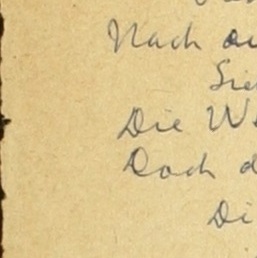 Nach au
Sie
Die We
Doch d
Di